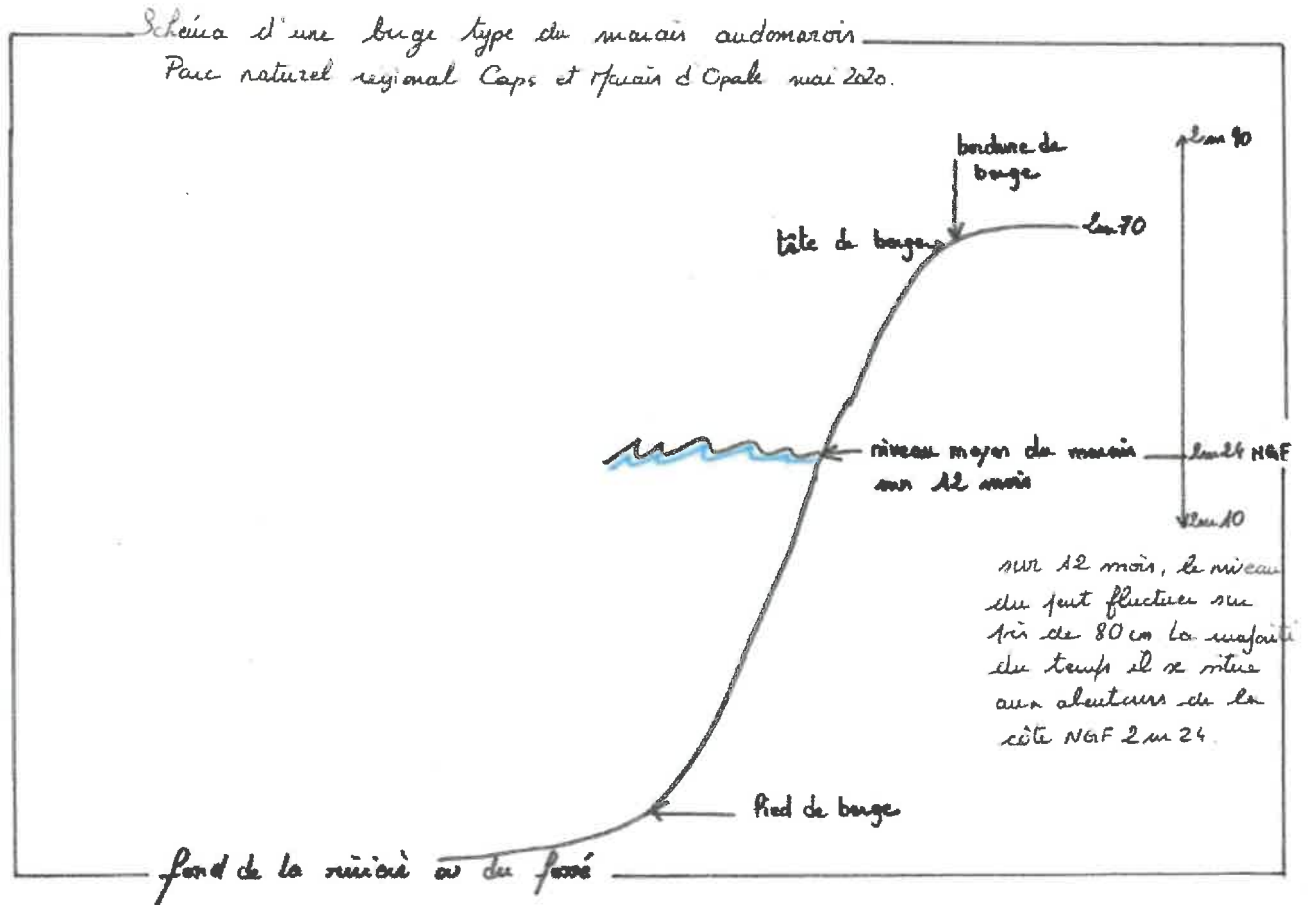 Schéma d'une berge type du marais audomarois
Parc naturel regional Caps et Marais d'Opale mai 2020.
2m90
bordure de
berge
2m70
tête de berge
niveau moyen du marais
sur 12 mois
2m24 NGF
2m10
sur 12 mois, le niveau
du peut fluctuer sur
près de 80 cm La majorité
du temps il se situe
aux alentours de la
côte NGF 2m24
Pied de berge
fond de la rivière ou du fossé